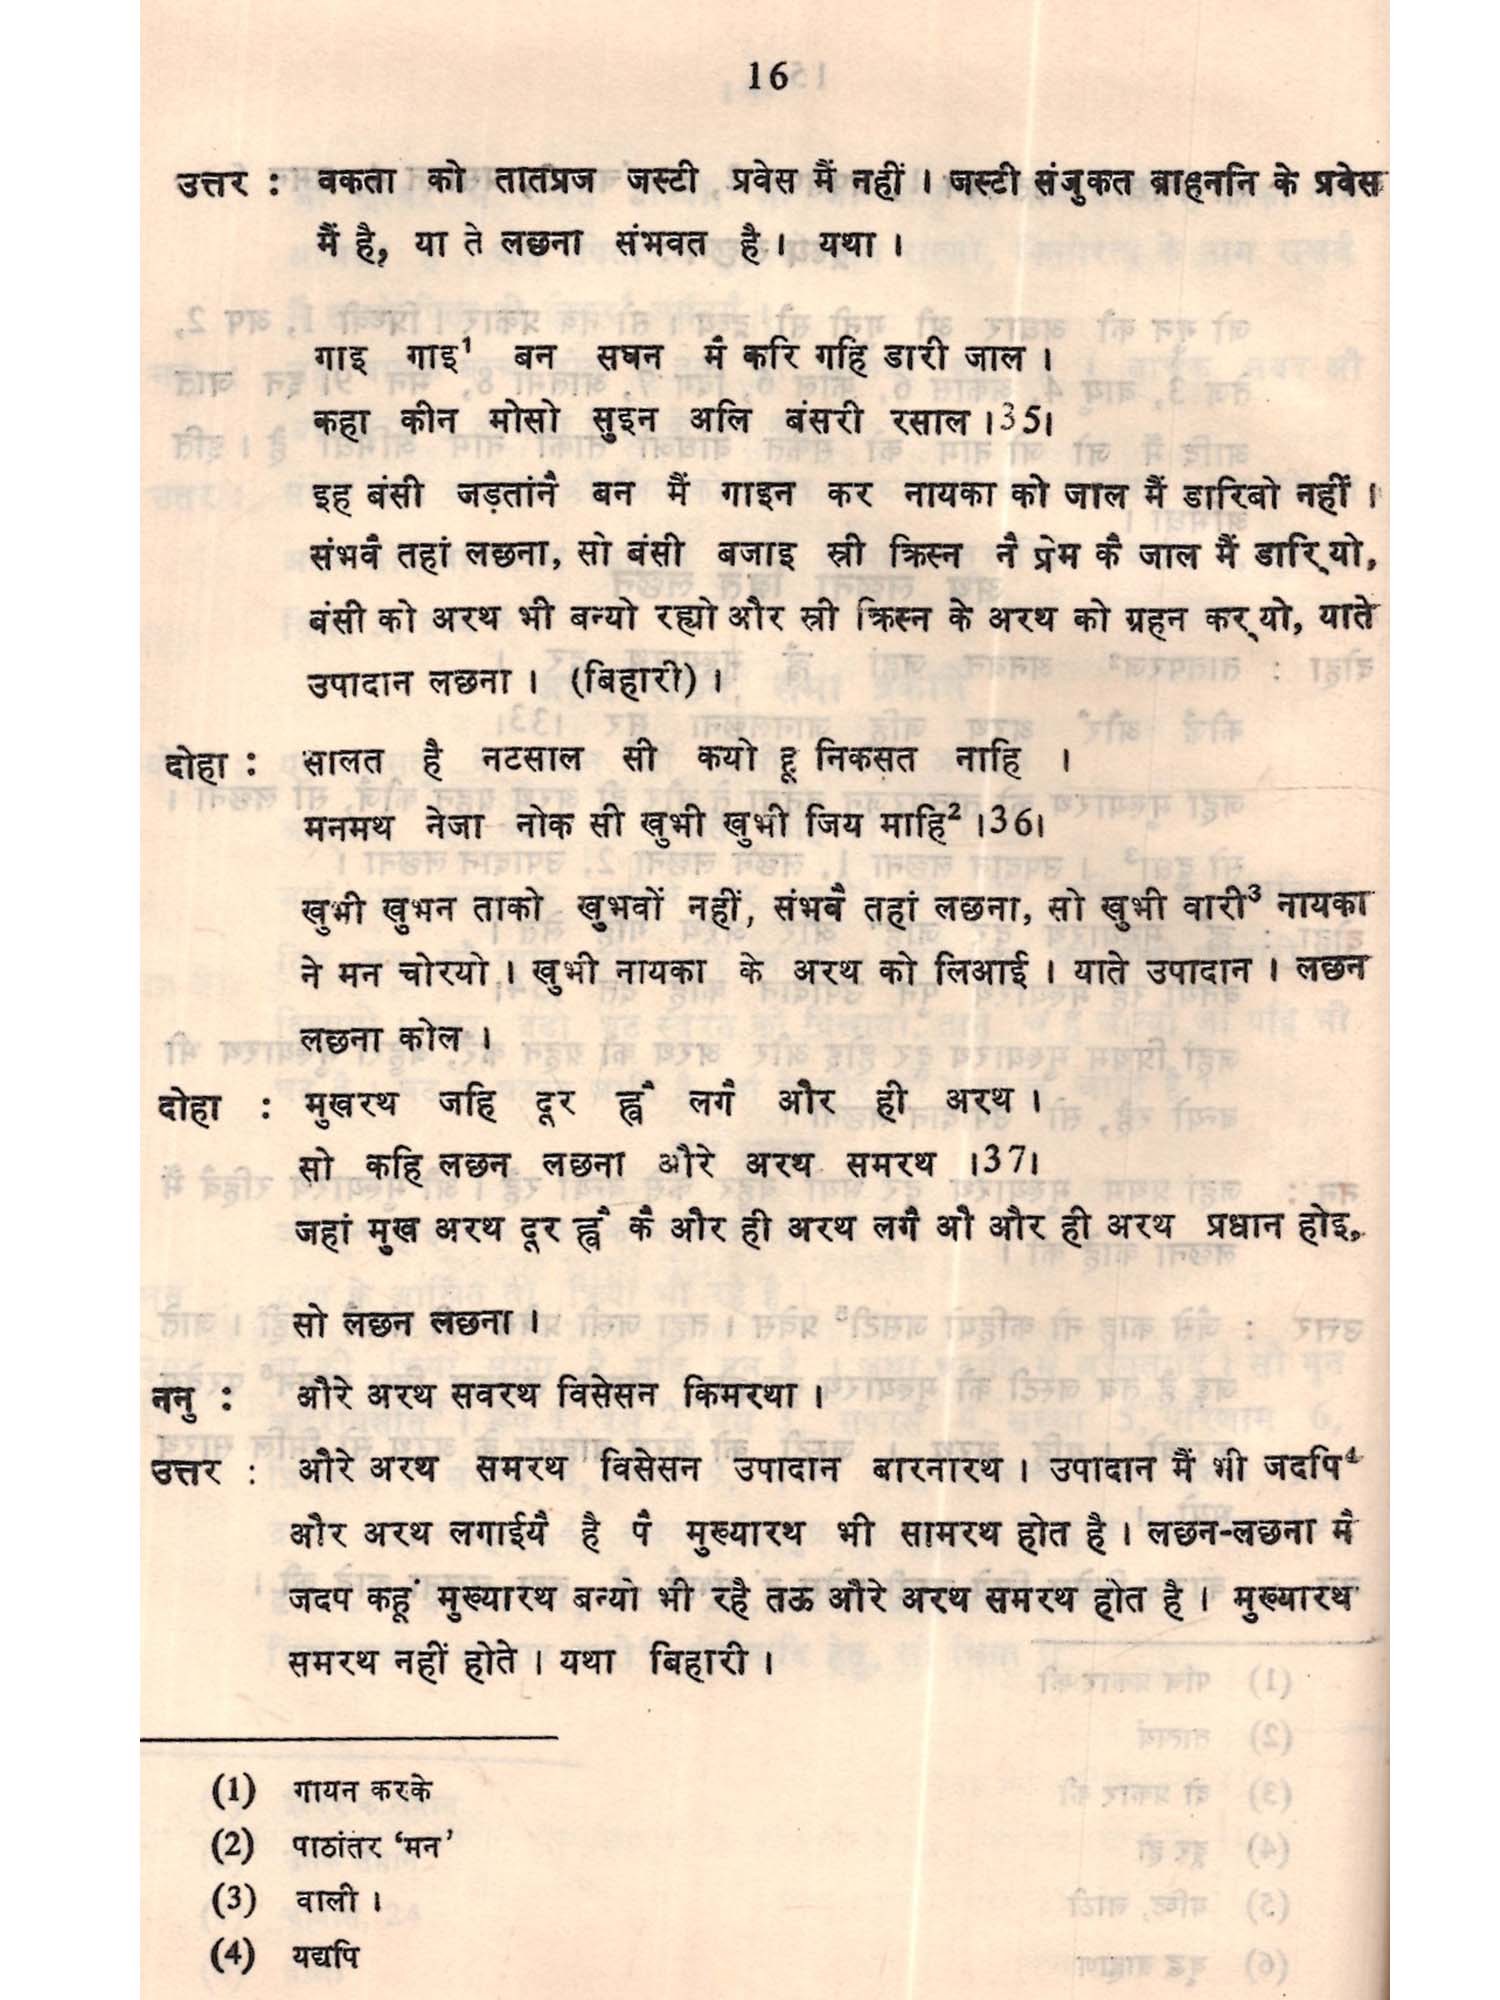 16
उत्तर : वकता को तातप्रज जस्टी प्रवेस मैं नहीं । जस्टी संजुकत ब्राहननि के प्रवेस
मैं है, या ते लछना संभवत है । यथा ।
गाइ गाइ¹ बन सघन मैं करि गहि डारी जाल ।
कहा कीन मोसो सुइन अलि बंसरी रसाल ।35।
इह बंसी जड़तांनै बन मैं गाइन कर नायका को जाल मैं डारिबो नहीं ।
संभवै तहां लछना, सो बंसी बजाइ स्री क्रिस्न नै प्रेम कै जाल मैं डारि्यो,
बंसी को अरथ भी बन्यो रह्यो और स्री क्रिस्न के अरथ को ग्रहन कर्‌यो, याते
उपादान लछना । (बिहारी) ।
दोहा : सालत है नटसाल सी कयो हू निकसत नाहि ।
मनमथ नेजा नोक सी खुभी खुभी जिय माहि² ।36।
खुभी खुभन ताको खुभवों नहीं, संभबै तहां लछना, सो खुभी वारी³ नायका
ने मन चोरयो । खुभी नायका के अरथ को लिआई । याते उपादान । लछन
लछना कोल ।
दोहा : मुखरथ जहि दूर ह्वै लगै और ही अरथ ।
सो कहि लछन लछना औरे अरथ समरथ ।37।
जहां मुख अरथ दूर ह्वै कै और ही अरथ लगै औ और ही अरथ प्रधान होइ,
सो लछन लछना ।
ननु : औरे अरथ सवरथ विसेसन किमरथा ।
उत्तर : औरे अरथ समरथ विसेसन उपादान बारनारथ । उपादान मैं भी जदपि⁴
और अरथ लगाईयै है पै मुख्यारथ भी सामरथ होत है । लछन-लछना मै
जदप कहूं मुख्यारथ बन्यो भी रहै तऊ औरे अरथ समरथ होत है । मुख्यारथ
समरथ नहीं होते । यथा बिहारी ।
(1) गायन करके
(2) पाठांतर ‘मन’
(3) वाली ।
(4) यद्यपि